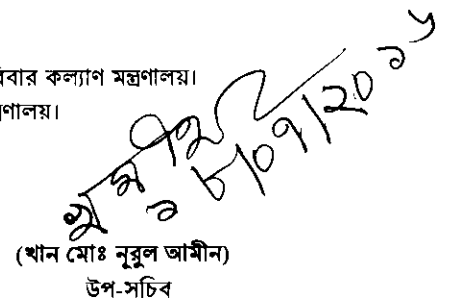 রিবার কল্যাণ মন্ত্রণালয়।
ণালয়।
১৮/০৭/২০১৬
(খান মোঃ নূরুল আমীন)
উপ-সচিব